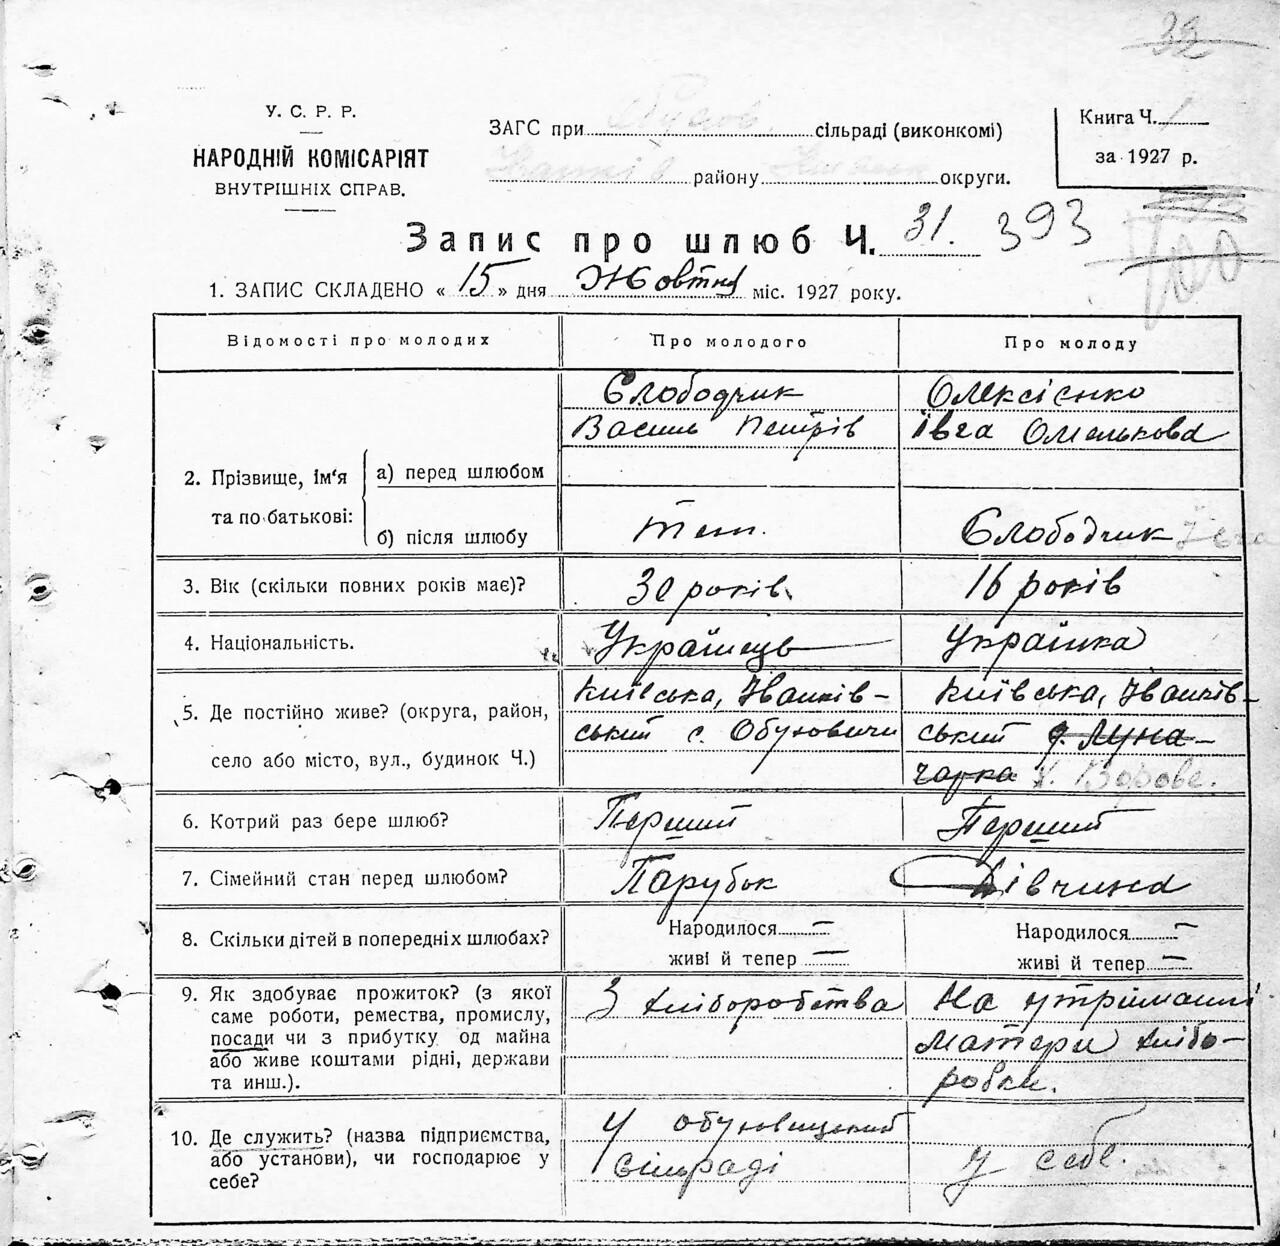 32
У. С. Р. Р.
НАРОДНІЙ КОМІСАРІЯТ
ВНУТРІШНІХ СПРАВ.
ЗАГС при Обухов. сільраді (виконкомі)
Іванків району округи.
Книга Ч. 1
за 1927 р.
Запис про шлюб Ч. 31. 393
400
1. ЗАПИС СКЛАДЕНО « 15 » дня Жовтня міс. 1927 року.
Відомості про молодих Про молодого Про молоду
2. Прізвище, ім'я та по батькові:
а) перед шлюбом
Слободчик
Василь Петрів
Олексієнко
Ївга Омелькова
б) після шлюбу
теп.
Слободчик Ївга
3. Вік (скільки повних років має)? 30 років. 16 років
4. Національність. Українець Українка
5. Де постійно живе? (округа, район,
село або місто, вул., будинок Ч.)
Київська, Іванків-
ський с. Обуховичи
Київська, Іванків-
ський д. Луна-
чарка
6. Котрий раз бере шлюб? Перший Перший
7. Сімейний стан перед шлюбом? Парубок Дівчина
8. Скільки дітей в попередніх шлюбах? Народилося — Народилося —
живі й тепер — живі й тепер —
9. Як здобуває прожиток? (з якої
саме роботи, ремества, промислу,
посади чи з прибутку од майна
або живе коштами рідні, держави
та инш.).
З хліборобства
На утриманні
матери хлібо-
робки.
10. Де служить? (назва підприємства,
або установи), чи господарює у
себе?
У обуховицький
сільраді
У себе.